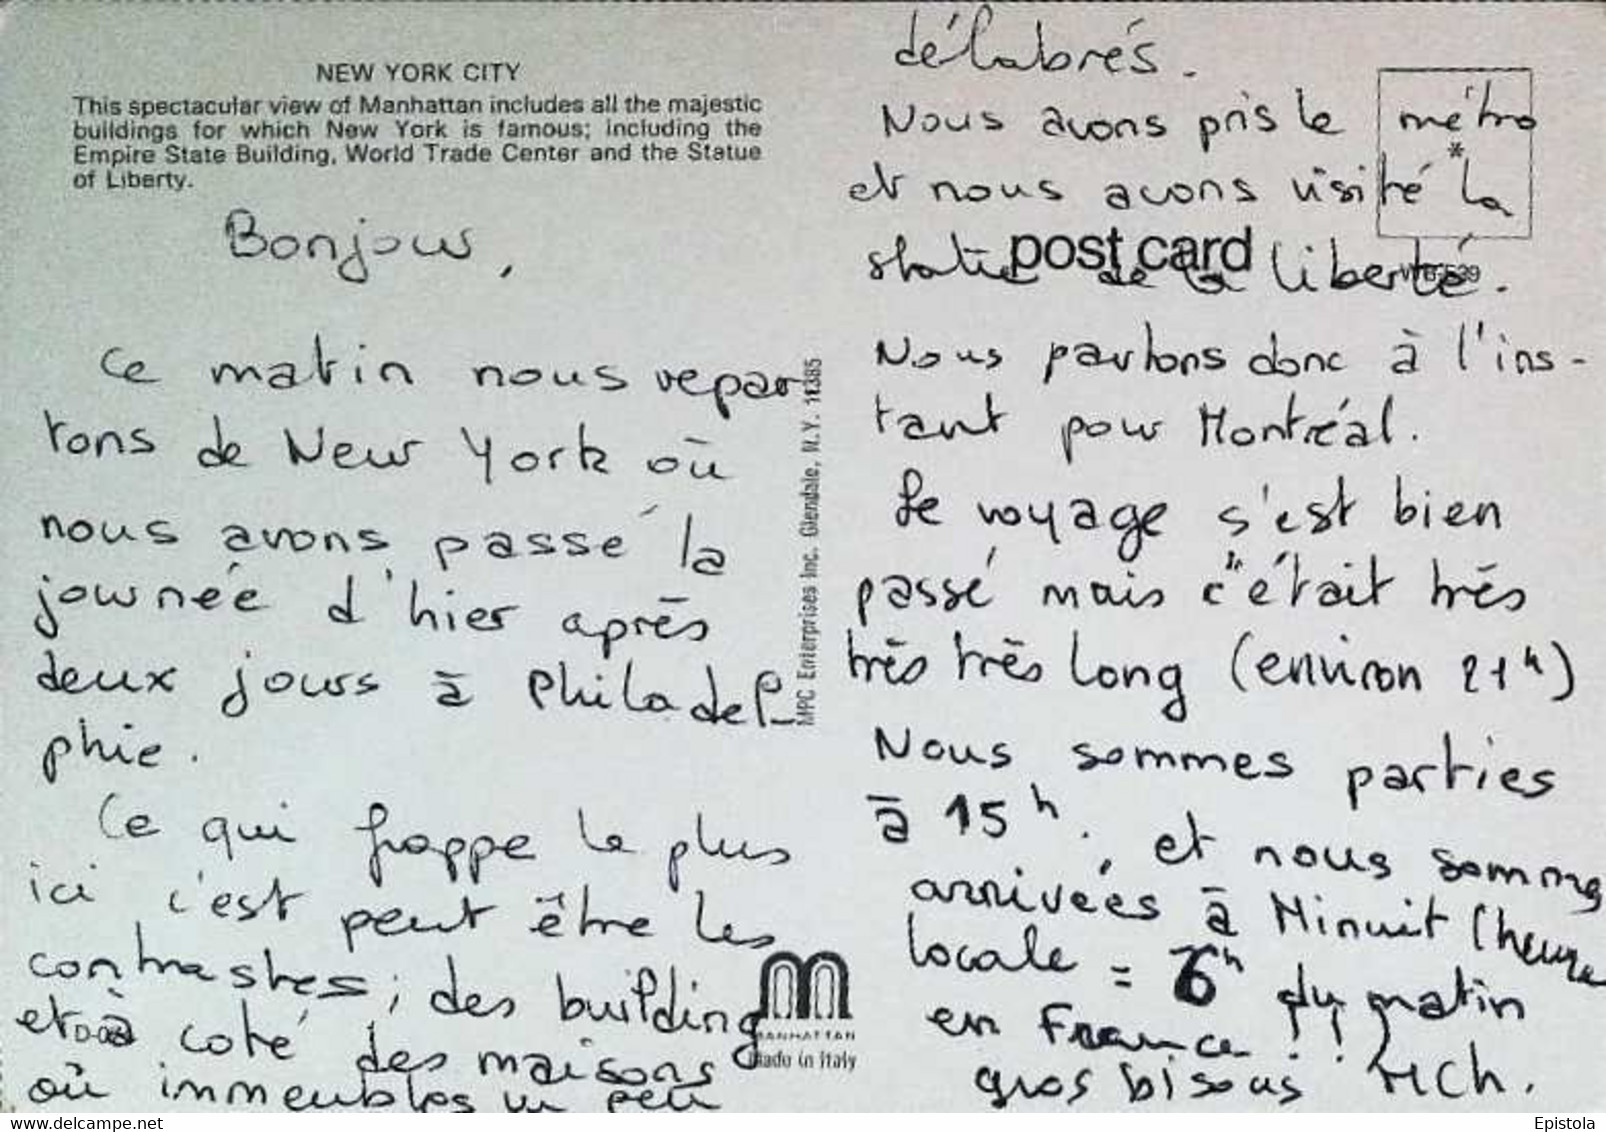 NEW YORK CITY
This spectacular view of Manhattan includes all the majestic
buildings for which New York is famous; including the
Empire State Building, World Trade Center and the Statue
of Liberty.
Bonjour,
Ce matin nous repar
tons de New York où
nous avons passé la
journée d'hier après
deux jours à Philadel-
phie.
Ce qui frappe le plus
ici c'est peut être les
contrastes; des building
et à coté des maisons
où immeubles un peu
MANHATTAN
Made in Italy
MPC Enterprises Inc. Glendale, N.Y. 11385
délabrés.
Nous avons pris le métro
*
et nous avons visité la
post card
statue de la liberté.
Nous partons donc à l'ins-
tant pour Montréal.
Le voyage s'est bien
passé mais c'était très
très très long (environ 21h)
Nous sommes parties
à 15h, et nous sommes
arrivées à Minuit (heure
locale = 6h du matin
en France!!
gros bisous MCh.
Epistola
www.delcampe.net